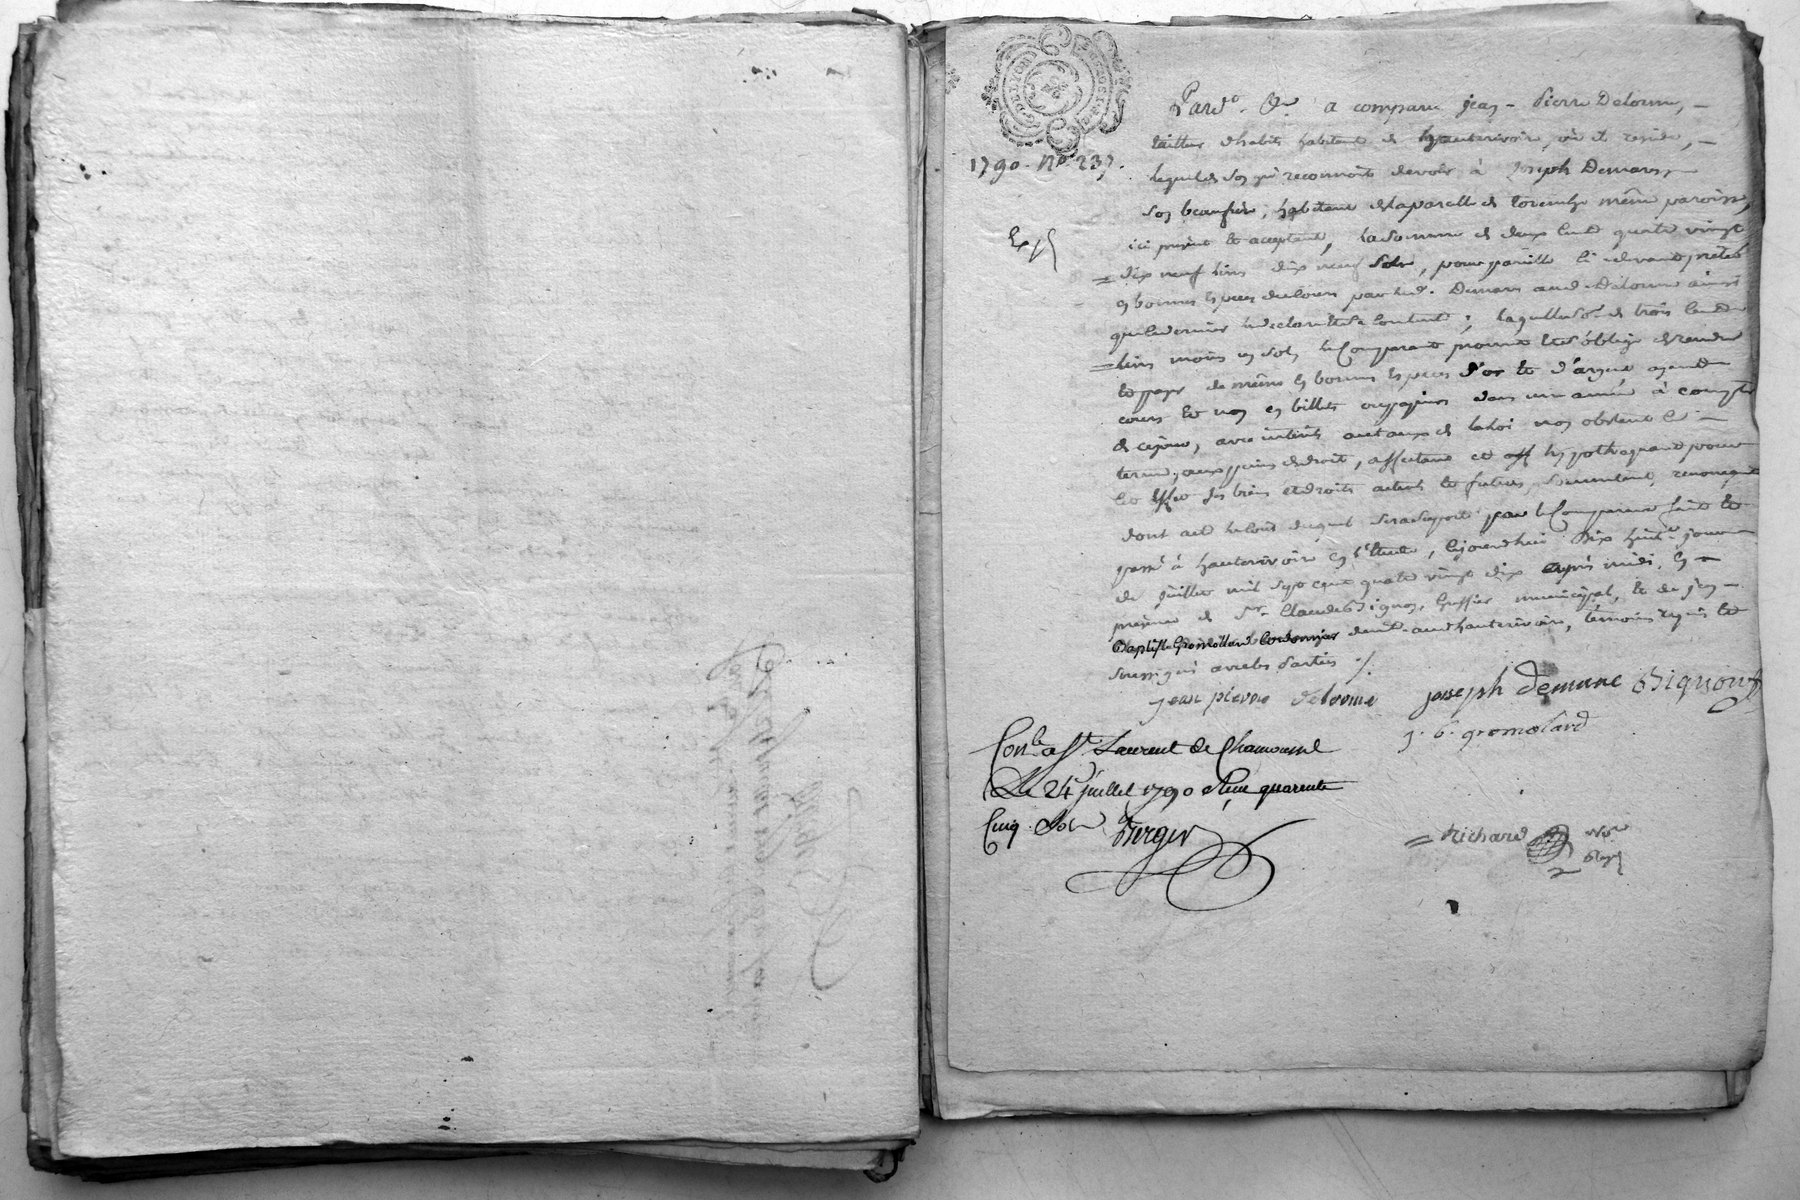 1790. No 237.
Pard.t No.re a comparu jean - Pierre Delorme, -
tailleur d'habits habitant de hauterivoire, où il reside, -
lequel de son gré reconnoit devoir à Joseph Demare, -
son beaufrere, habitant de la parcelle de même paroisse,
ici present et acceptant, la somme de deux cent quatre vingt
= dix neuf livres dix neuf sols, pour pareille ci devant prêtés
en bonnes especes de cours par led. Demare aud. Delorme ainsi
que ce dernier le declare et se contente ; laquelle so.e de trois cents
= livres moins un sol, le Comparant promet et s'oblige de rendre
et payer de même en bonnes especes d'or et d'argent ayant
cours et non en billets ou papiers dans une année à compter
de ce jour, avec interêts au taux de la loi non obstant le -
terme, aux peines de droit, affectant et hypothequant pour
ce ses biens et droits actuels et futurs, soumettant, renonçant
dont acte le cout duquel sera suporté par le Comparant fait et
passé à hauterivoire en l'Etude, cejourd'hui dix huit.e jour
de juillet mil sept cent quatre vingt dix après midi, en
presence de Sr. Claude Bignon, Greffier municipal, et de jean -
Baptiste Gromollard Cordonnier dem.t aud. hauterivoire, témoins requis et
soussignés avec les Parties ./.
jean pierre delorme joseph Demare Bignon
j. b. gromolard
Con.lé a St Laurent de Chamousset
Le 24 juillet 1790 Reçu quarente
Cinq Sols Berger
= Richard No.re